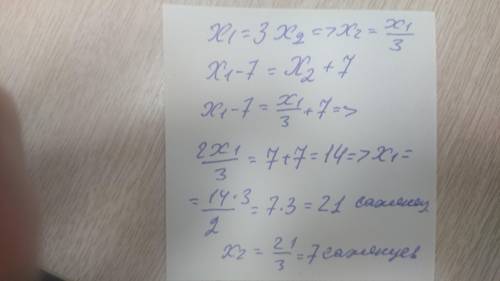 x₁ = 3 x₂ => x₂ = x₁/3
x₁ - 7 = x₂ + 7
x₁ - 7 = x₁/3 + 7 =>
2x₁/3 = 7 + 7 = 14 => x₁ =
= 14·3/2 = 7·3 = 21 саженец
x₂ = 21/3 = 7 саженцев